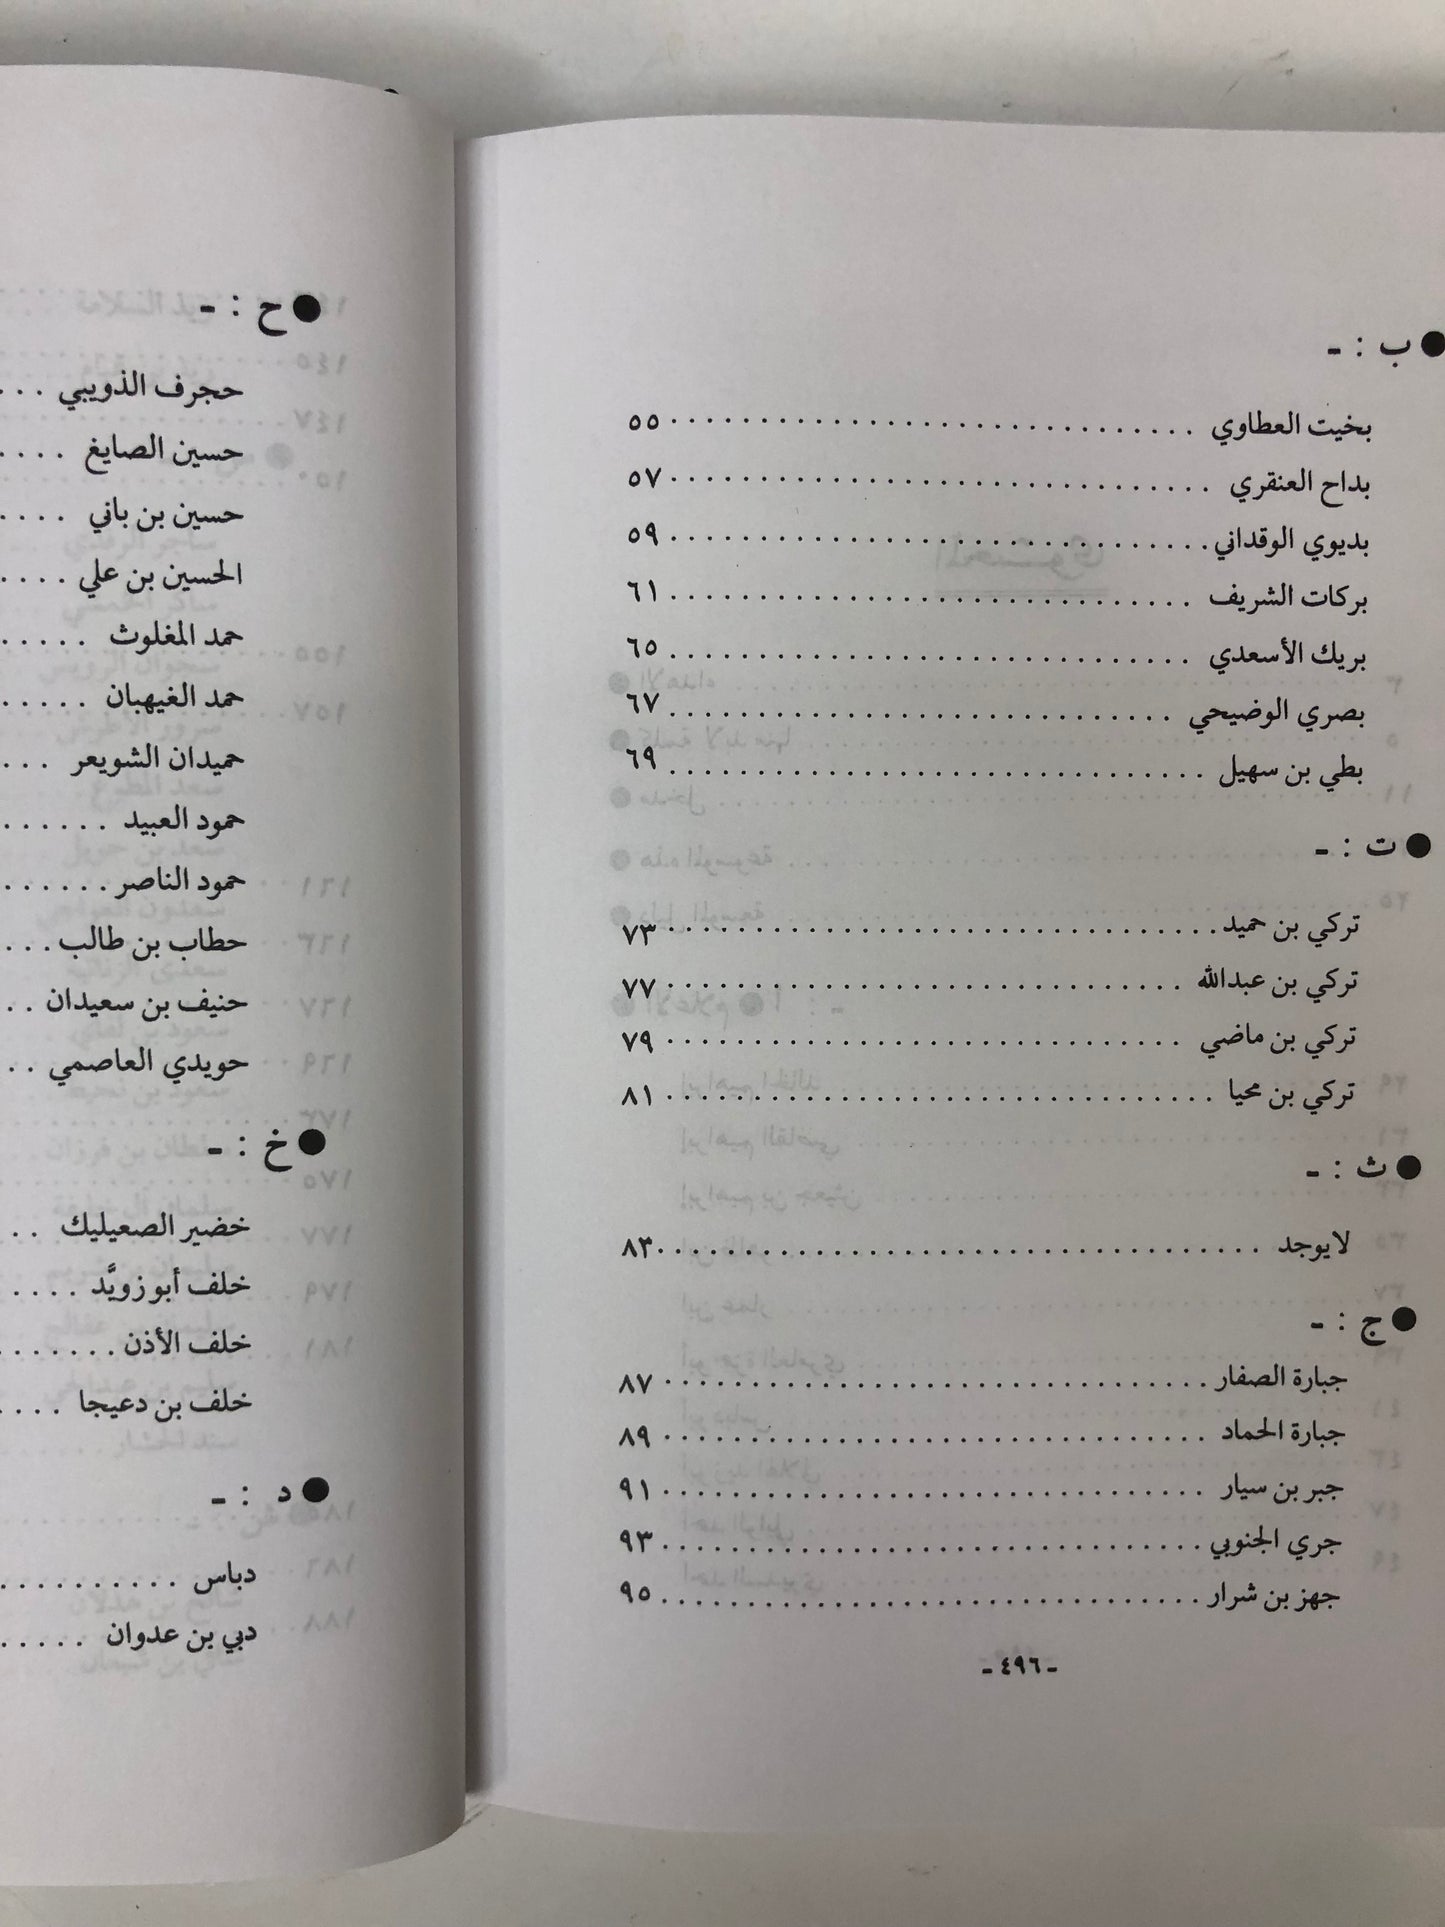 ● ب : -
بخيت العطاوي ........................ ٥٥
بداح العنقري ........................ ٥٧
بديوي الوقداني ........................ ٥٩
بركات الشريف ........................ ٦١
بريك الأسعدي ........................ ٦٥
بصري الوضيحي ........................ ٦٧
بطي بن سهيل ........................ ٦٩
● ت : -
تركي بن حميد ........................ ٧٣
تركي بن عبدالله ........................ ٧٧
تركي بن ماضي ........................ ٧٩
تركي بن محيا ........................ ٨١
● ث : -
لايوجد ........................ ٨٣
● ج : -
جبارة الصفار ........................ ٨٧
جبارة الحماد ........................ ٨٩
جبر بن سيار ........................ ٩١
جري الجنوبي ........................ ٩٣
جهز بن شرار ........................ ٩٥
- ٤٩٦ -
● ح : -
حجرف الذويبي ...
حسين الصايغ ....
حسين بن باني ....
الحسين بن علي ....
حمد المغلوث .....
حمد الغيهبان .....
حميدان الشويعر ...
حمود العبيد ......
حمود الناصر ......
حطاب بن طالب ...
حنيف بن سعيدان ..
حويدي العاصمي ..
● خ : -
خضير الصعيليك ..
خلف أبو زويَّد ....
خلف الأذن .......
خلف بن دعيجا ....
● د : -
دباس ..........
دبي بن عدوان .....